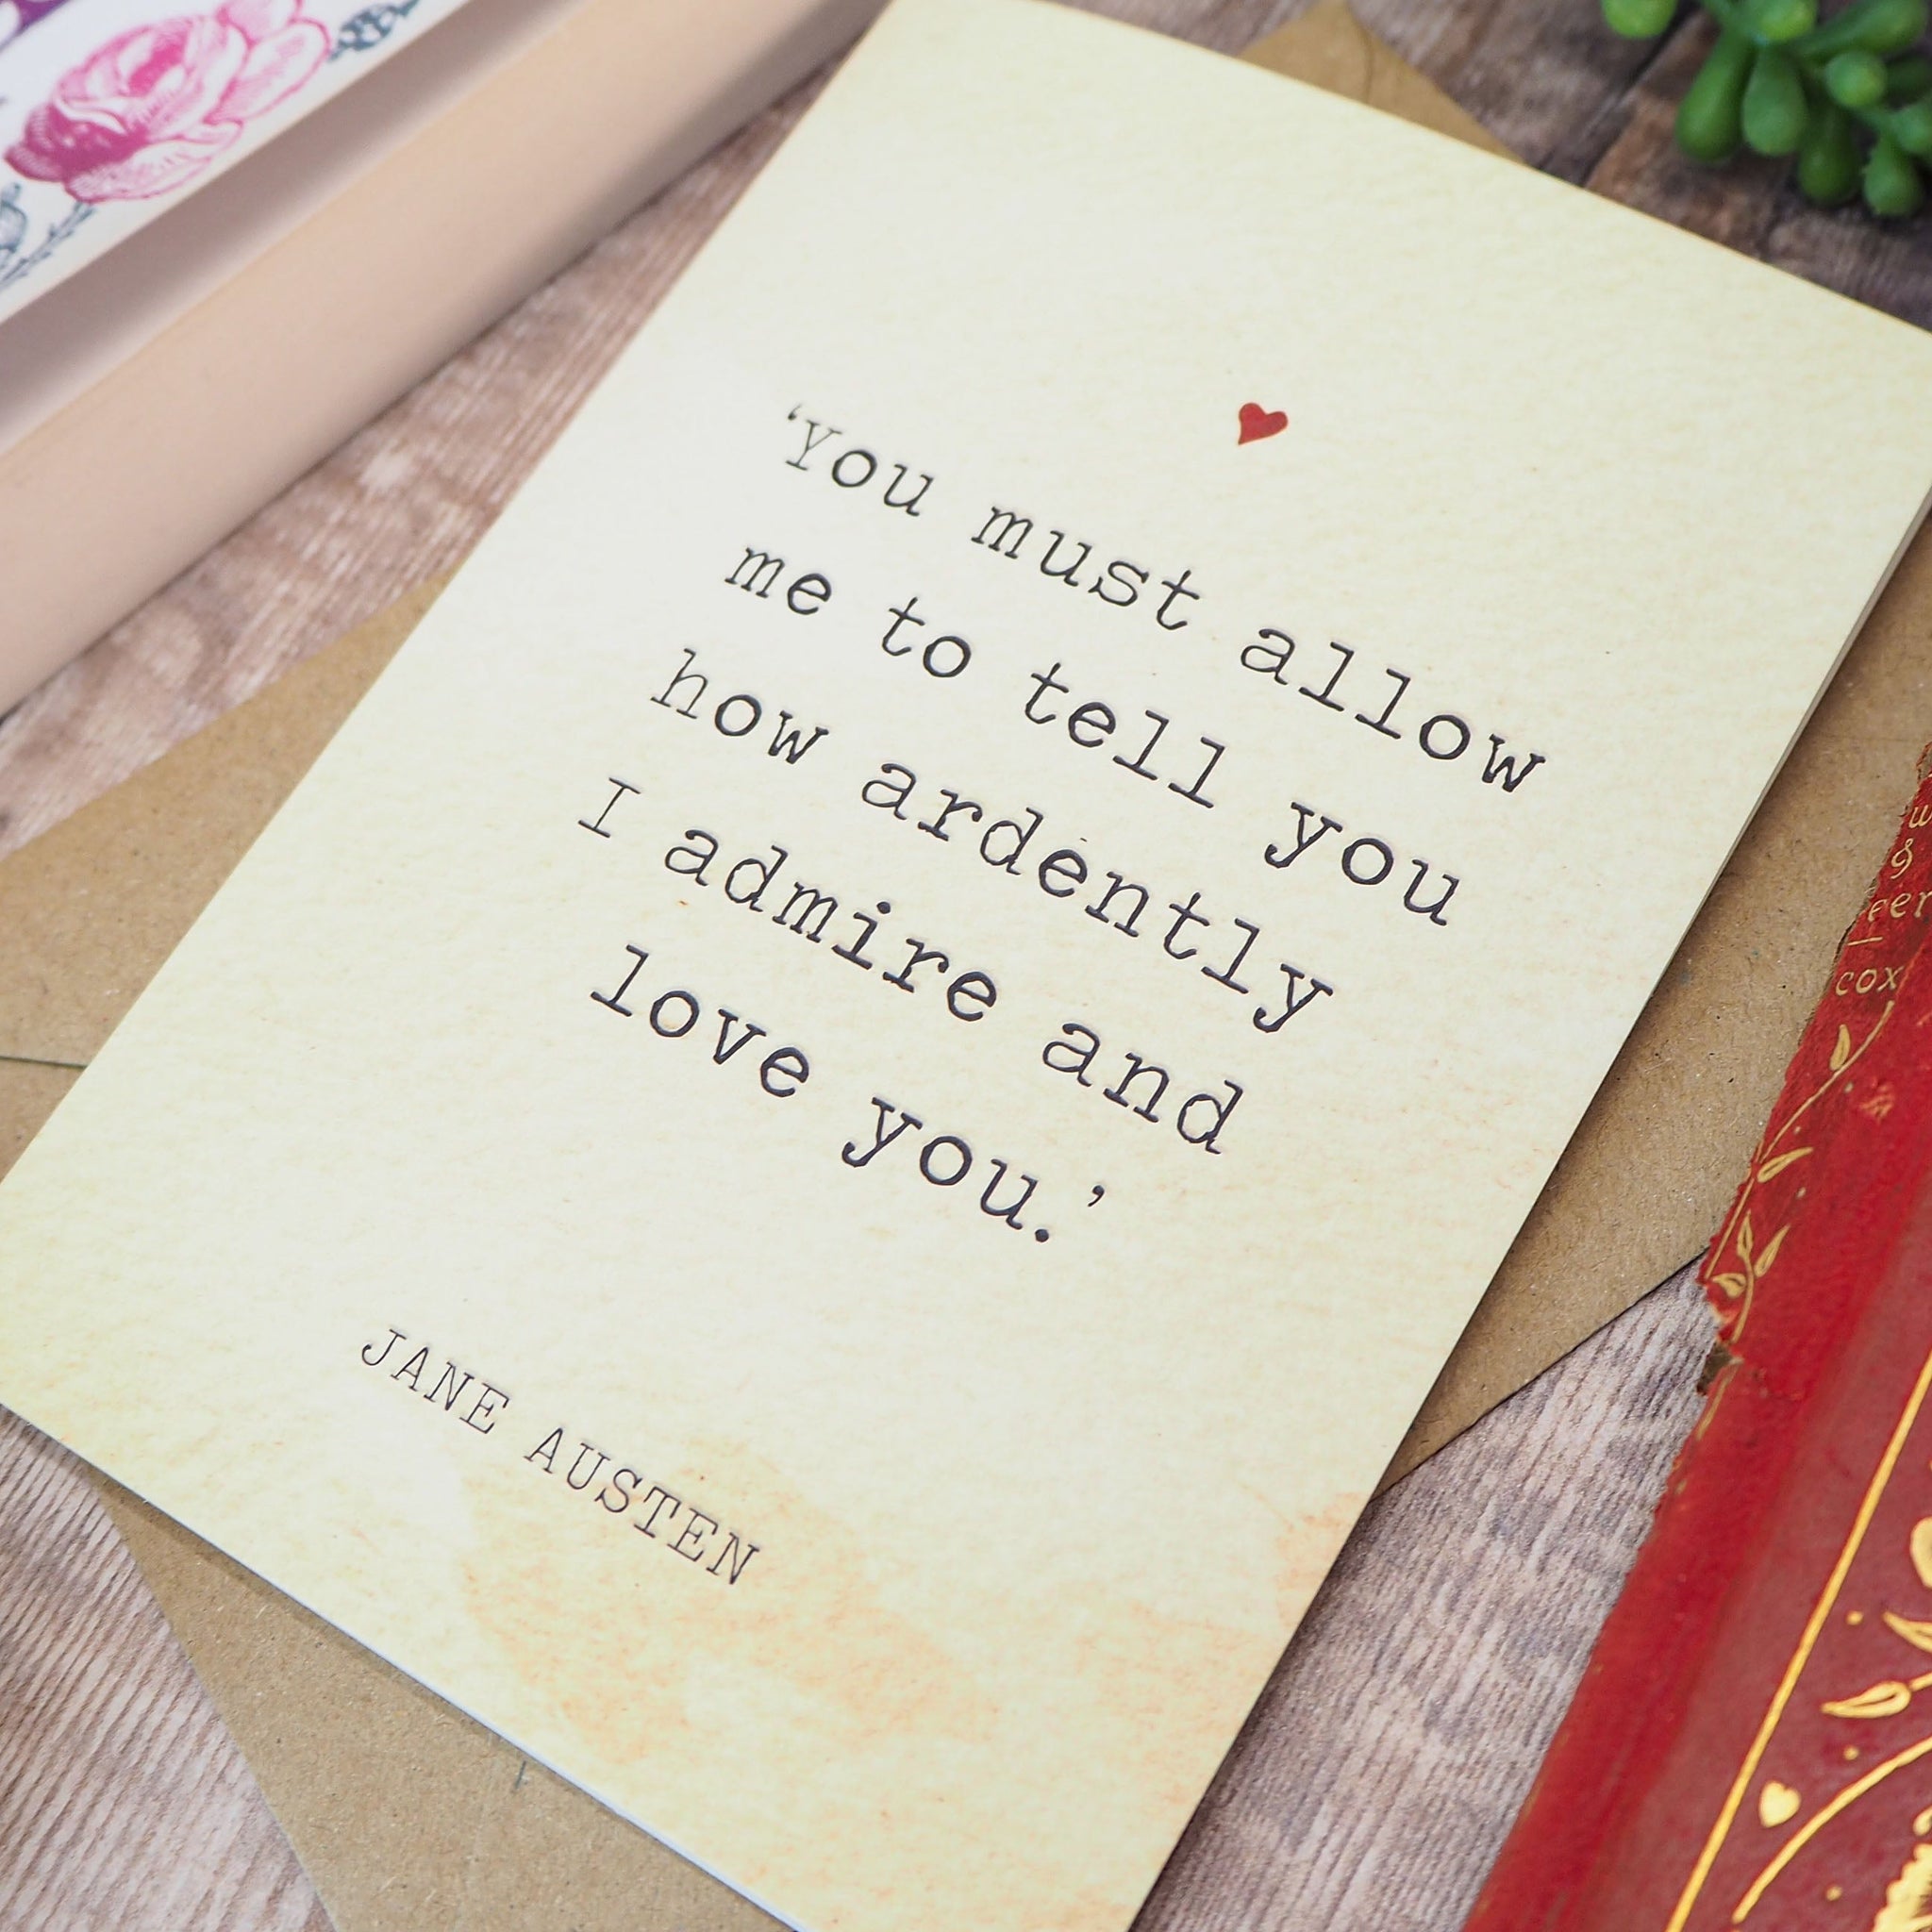 ‘You must allow
me to tell you
how ardently
I admire and
love you.’
JANE AUSTEN
&
cox